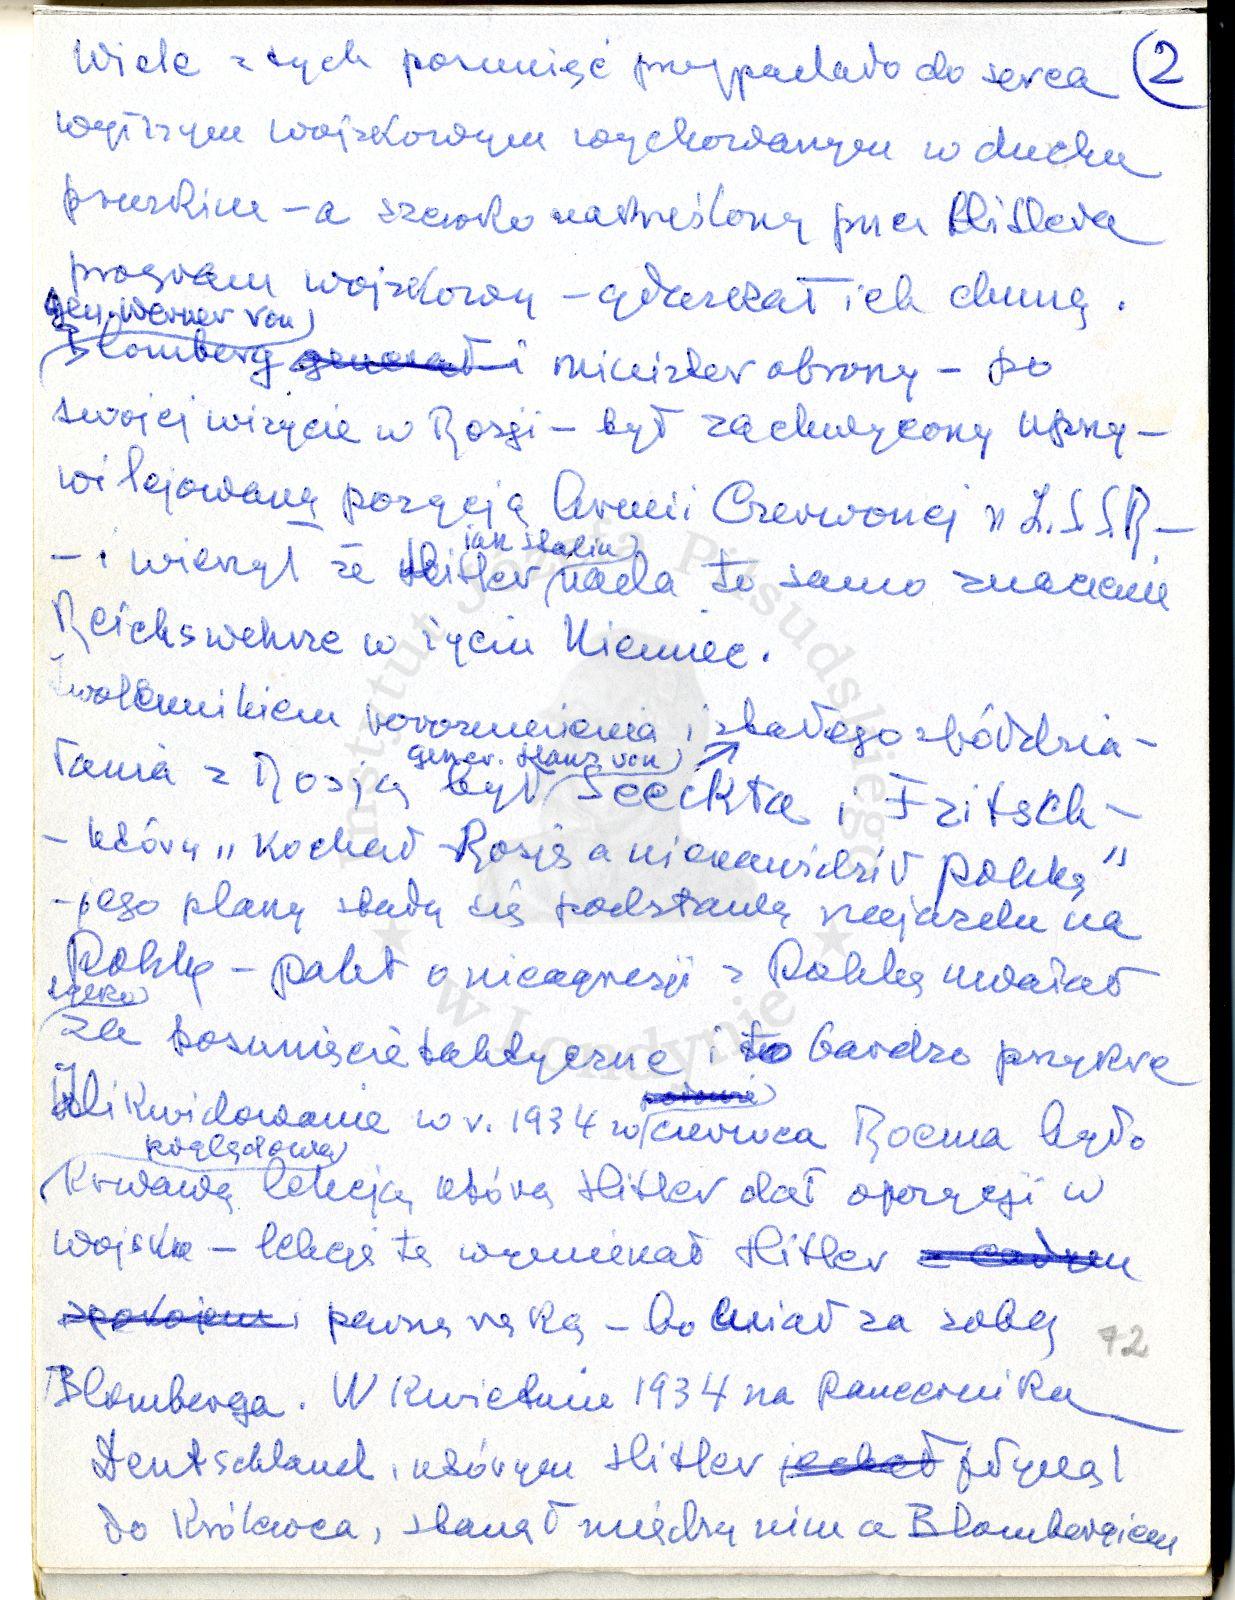 Wiele z tych posunięć przypadało do serca (2
wyższym wojskowym wychowanym w duchu
pruskim – a szeroko nakreślony przez Hitlera
program wojskowy – ich dumą.
gen. Werner von
Blomberg generał i minister obrony – po
swojej wizycie w Rosji – był zachwycony uprzy–
wilejowaną pozycją Armii Czerwonej w Z.S.S.R –
jak Stalin
– i wierzył że Hitler nada to samo znaczenie
Reichswehrze w życiu Niemiec.
Zwolennikiem porozumienia i stałego współdzia–
gener. Hans von
łania z Rosją był Seeckta i Fritsch –
– który „kochał Rosję a nienawidził Polskę"
– jego plany stały się podstawą najazdu na
Polskę – pakt o nieagresji z Polską uważał
tylko
za posunięcie taktyczne i to bardzo przykre
Zlikwidowanie w r. 1934 w czerwcu Roema było
poglądową
krwawą lekcją którą Hitler dał opozycji w
wojsku – lekcję tę wymierzał Hitler z całym
spokojem i pewną ręką – bo miał za sobą
72
Blomberga. W Kwietniu 1934 na pancerniku
Deutschland, którym Hitler jechał płynął
do Królewca, stanął między nim a Blombergiem
Instytut Józefa Piłsudskiego
w Londynie